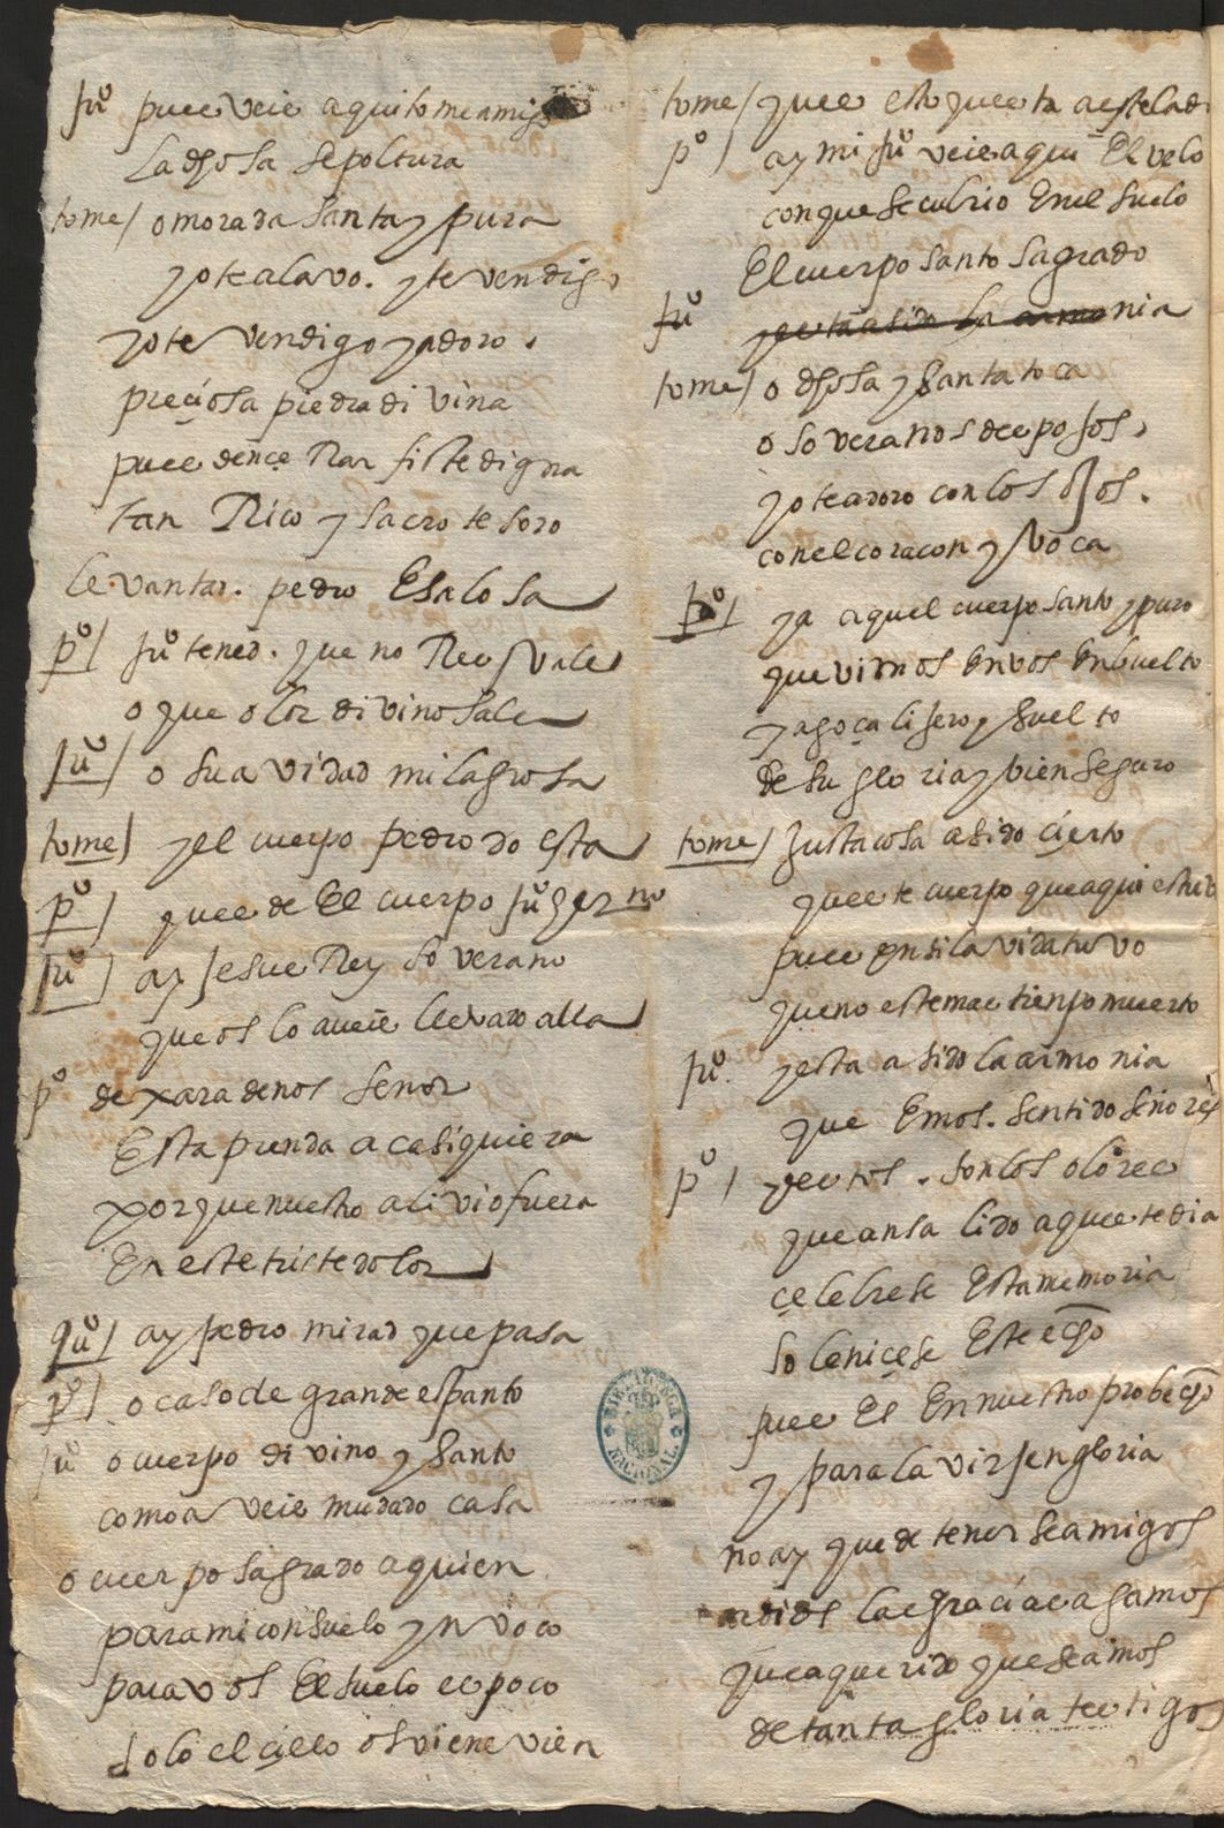 juº pues veis aqui tome amigo
la dhosa sepoltura
tome/ o morada santa y pura
yo te alavo. y te vendigo
yo te vendigo y adoro.
preçiosa piedra divina
pues dençerrar fiste digna
tan Rico y sacro tesoro
levantar. pedro Esa losa
pº/ juº tened. que no Resvale
o que olor divino sale
juº/ o suavidad milagrosa
tome/ y el cuerpo pedro do esta
pº/ ques de El cuerpo juº
juº/ ay jesus Rey soverano
que os lo aveis llevado alla
pº dexaradenos senor
Esta prenda aca siquiera
porque nuestro alivio fuera
En este triste dolor
juº/ ay pedro mirad que pasa
pº/ o caso de grande espanto
juº o cuerpo divino y santo
como a veis mudado casa
o cuerpo sagrado a quien
para mi consuelo ynvoco
para vos El suelo es poco
solo el çielo os viene vien
tome/ ques esto questa a este lado
pº/ ay mi juº veis aqui El velo
con que se cubrio En el suelo
El cuerpo santo sagrado
juº yesta a sido la armonia
tome/ o dhosa y santa toca
o soveranos despojos,
yo te adoro con los ojos.
con el coracon y voca
pº/ ya aquel cuerpo santo y puro
que vimos En vos Enbuelto
ya goça lijero y suelto
de su gloria y bien seguro
tome/ justa cosa a sido çierto
queste cuerpo que aqui estuvo
pues en si la vida tuvo
que no este mas tienpo muerto
juº. yesta a sido la armonia
que Emos. sentido señores
pº/ yestos. son los olores
que an salido aqueste dia
çelebrese Esta memoria
soleniçese Este echo
pues Es En nuestro probecho
y para la virjen gloria
no ay que detenerse amigos
a dios las graçias agamos
que a querido que seamos
de tanta gloria testigos
BIBLIOTECA NACIONAL